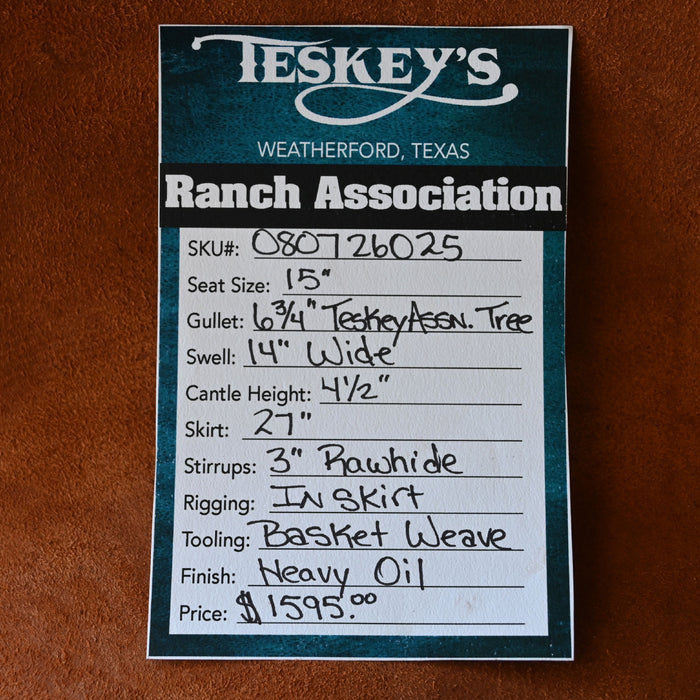 TESKEY'S
WEATHERFORD, TEXAS
Ranch Association
SKU#: 080726025
Seat Size: 15"
Gullet: 6 3/4" Teskey Assn. Tree
Swell: 14" Wide
Cantle Height: 4 1/2"
Skirt: 27"
Stirrups: 3" Rawhide
Rigging: In Skirt
Tooling: Basket Weave
Finish: Heavy Oil
Price: $1595.00